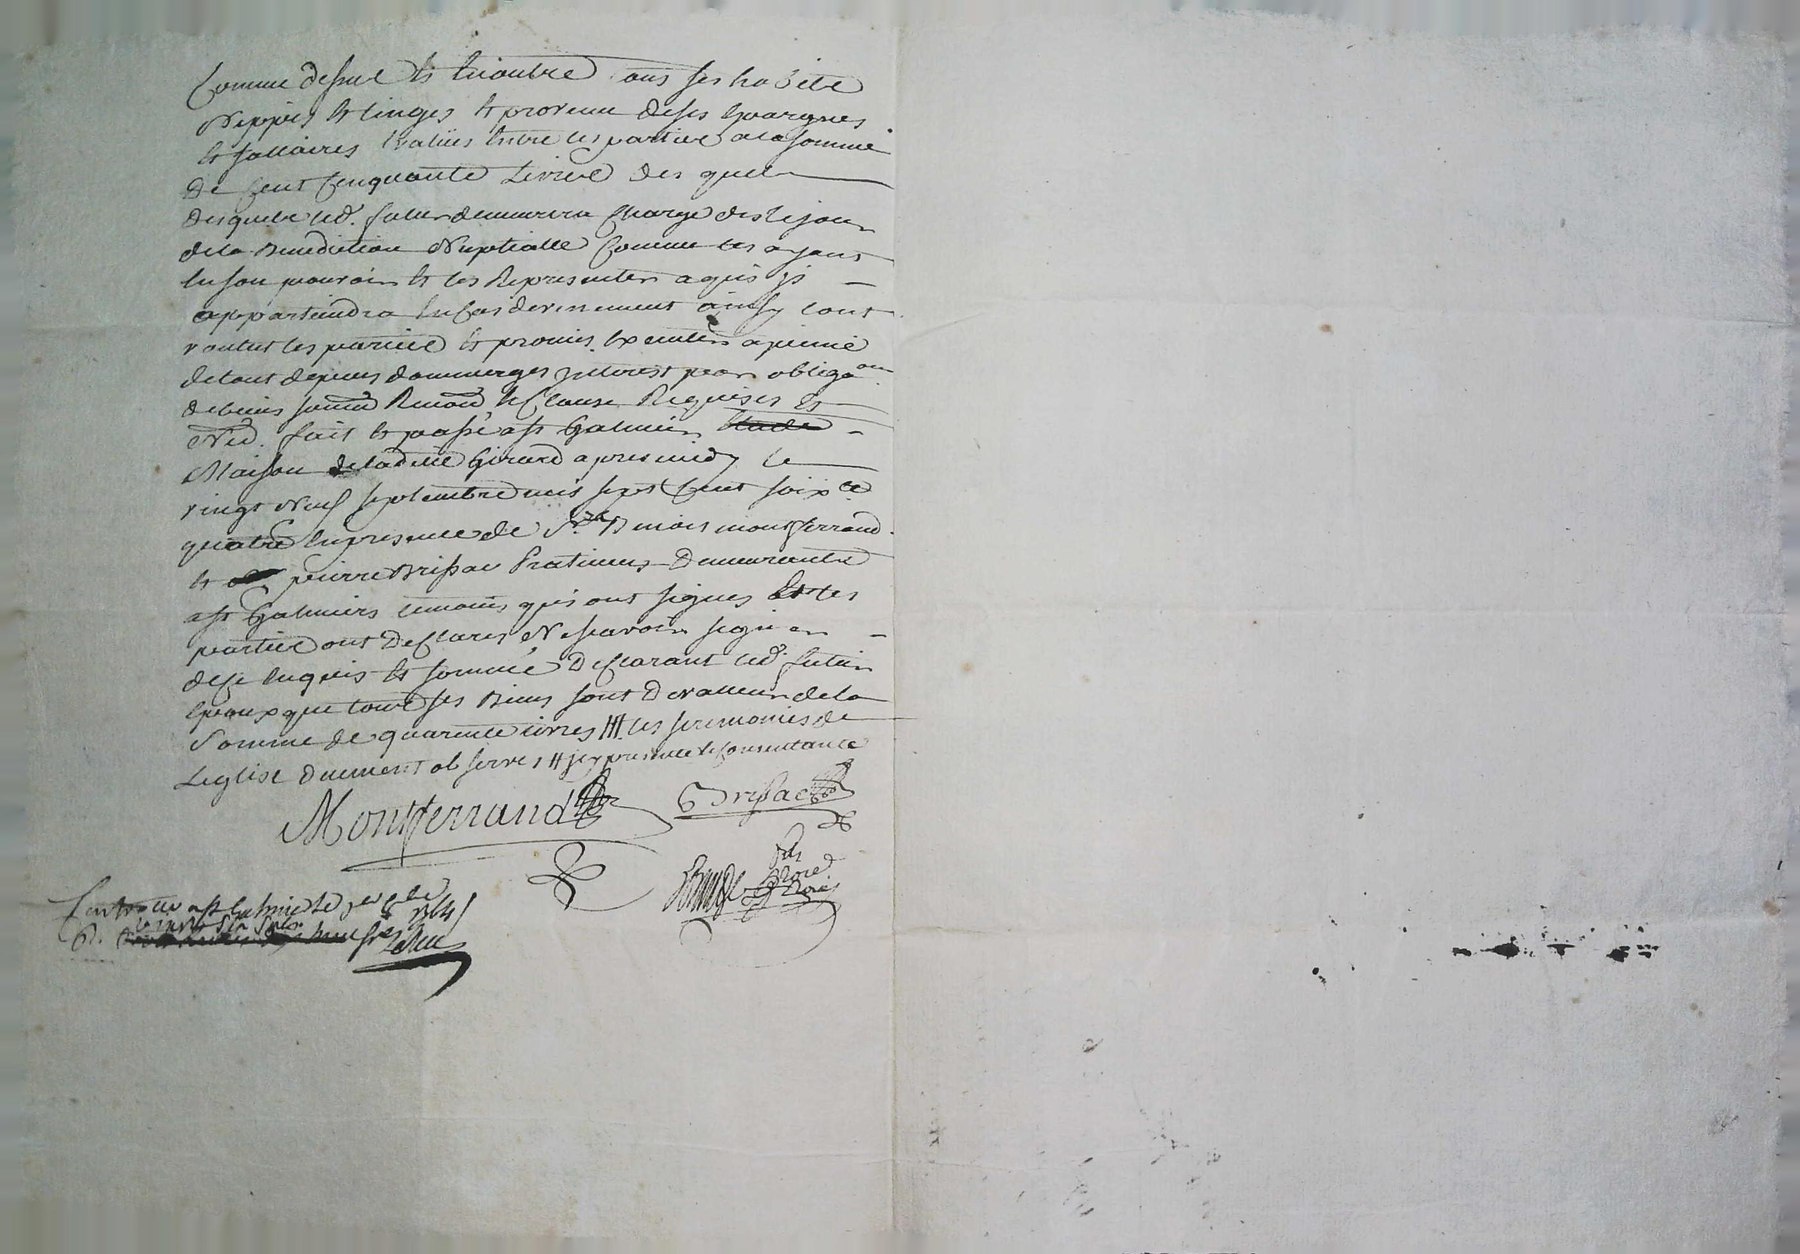 Comme dessus Et Encontre ans ses habits
Nippes Et linges Et provenu de ses Epargnes
Et sallaires Evalués Entre les parties a la somme
De Cent Cinquante Livres des quels
Desquels led. futur demeurera Chargé dès le jour
de la Benediction Nuptialle Comme les ayant
En son pouvoir Et les Representer a qui ils
appartiendra En Cas d'evenement ainsy l'ont
voulut les parties Et promis Executer a peine
de tout depens dommages jnterest par obliga on
de biens soumis Renon Et Clause Requises Et
Néd. fait Et passé a St Galmier
Maison de ladite Girard apres midy le
vingt Neuf septembre mil sept Cent soix te
quatre En presence de Sr. Benois montferrand
Et pierre Brissac Praticiens Demeurants
a St Galmiers temoins qui ont signes Et les
parties ont Declarés Ne scavoir signer
de ce Enquis Et sommés Declarant led. futur
Epoux que tous ses Biens sont De valleur de la
somme de quarente livres les seremonies de
L'eglise Duement observes Et consentante
Montferrand Brissac